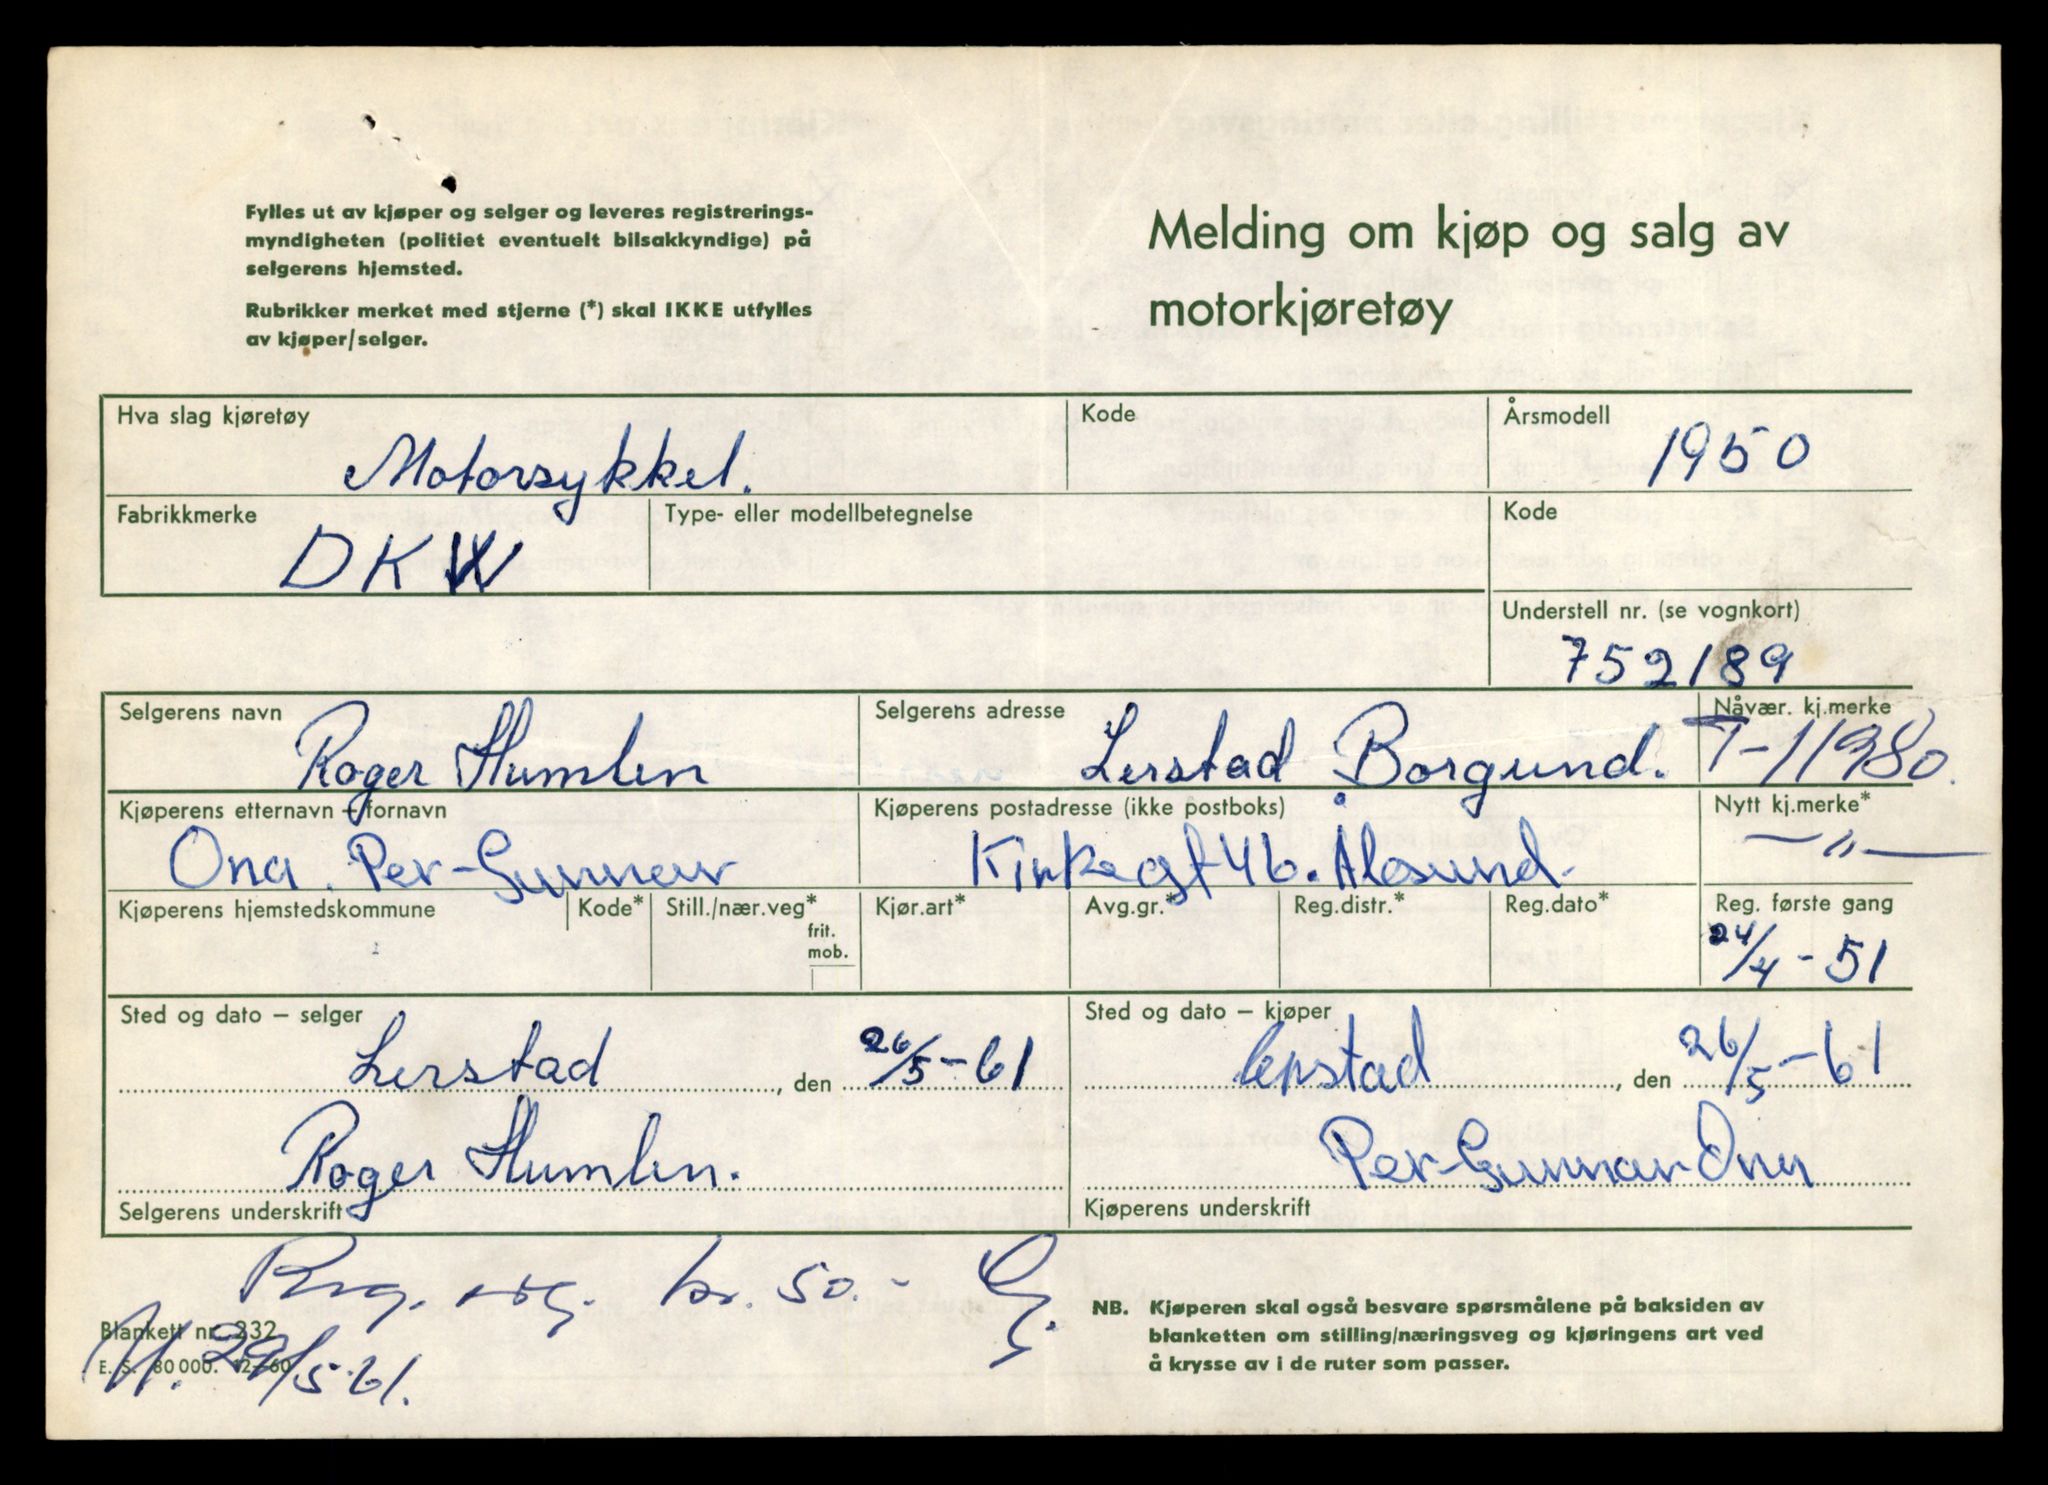 Fylles ut av kjøper og selger og leveres registrerings-
myndigheten (politiet eventuelt bilsakkyndige) på
selgerens hjemsted.
Rubrikker merket med stjerne (*) skal IKKE utfylles
av kjøper/selger.
Melding om kjøp og salg av
motorkjøretøy
Hva slag kjøretøy
Motorsykkel.
Kode
Årsmodell
1950
Fabrikkmerke
DKW
Type- eller modellbetegnelse
Kode
Understell nr. (se vognkort)
752189
Selgerens navn
Roger Humlen
Selgerens adresse
Lerstad Borgund.
Nåvær. kj.merke
T-11980.
Kjøperens etternavn + fornavn
Ona. Per-Gunnar
Kjøperens postadresse (ikke postboks)
Kirkegt 46. Ålesund.
Nytt kj.merke*
— " —
Kjøperens hjemstedskommune
Kode*
Still./nær.veg*
frit.
mob.
Kjør.art*
Avg.gr.*
Reg.distr.*
Reg.dato*
Reg. første gang
24/4-51
Sted og dato – selger
Lerstad, den 26/5-61
Roger Humlen.
Selgerens underskrift
Sted og dato – kjøper
lerstad, den 26/5-61
Per-Gunnar Ona
Kjøperens underskrift
kr. 50.-
Blankett nr. 232
E. S. 80 000. 12–60
29/5.61.
NB. Kjøperen skal også besvare spørsmålene på baksiden av
blanketten om stilling/næringsveg og kjøringens art ved
å krysse av i de ruter som passer.